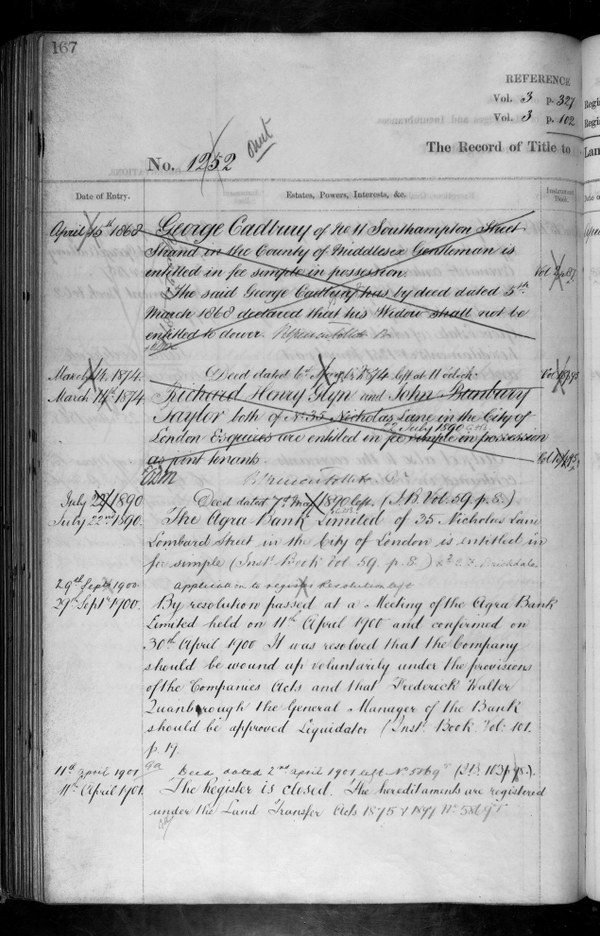 167
REFERENCE
Vol. 3 p. 327
Vol. 3 p. 102
The Record of Title to
No. 1252
Date of Entry.
Estates, Powers, Interests, &c.
April 15th 1868
George Cadbury of No 11 Southampton Street
Strand in the County of Middlesex Gentleman is
entitled in fee simple in possession.
The said George Cadbury has by deed dated 5th
March 1868 declared that his Widow shall not be
entitled to dower.
March 14. 1874.
Deed dated 6th 1874 left at 11 o'clock
March 14th 1874
Richard Henry Glyn and John Bunbury
Taylor both of No 35 Nicholas Lane in the City of
London Esquires are entitled in fee simple in possession
2 July 1890
as joint tenants
July 22 1890
Deed dated 7th May 1890 left. (I.B. Vol. 59. p. 8.)
July 22nd 1890.
The Agra Bank Limited of 35 Nicholas Lane
Lombard Street in the City of London is entitled in
fee simple (Inst. Book Vol. 59. p. 8.)
29th Sept 1900
Application to register Resolution
29th Sept 1900.
By resolution passed at a Meeting of the Agra Bank
Limited held on 11th April 1900 and confirmed on
30th April 1900 It was resolved that the Company
should be wound up voluntarily under the provisions
of the Companies Acts and that Frederick Walter
Quanborough the General Manager of the Bank
should be approved Liquidator (Inst. Book Vol. 101.
p. 17.
11th April 1901
Deed dated 2nd April 1901 left
11th April 1901.
The Register is closed. The hereditaments are registered
under the Land Transfer Acts 1875 & 1897